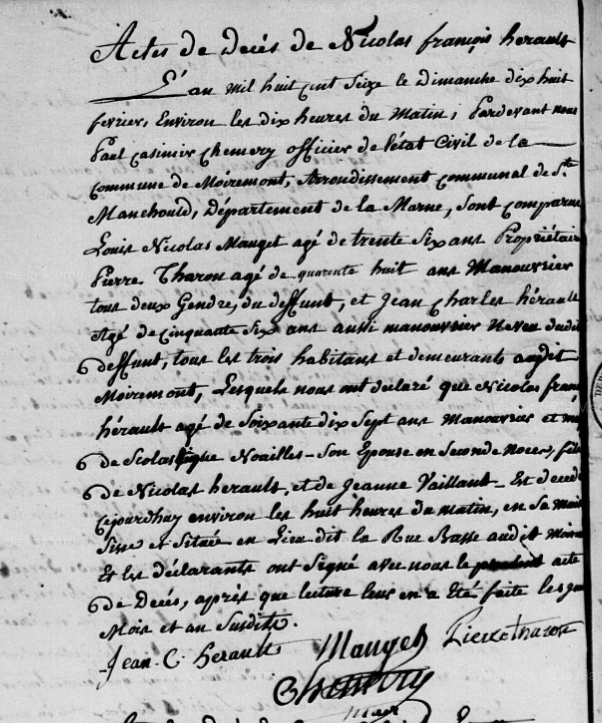 Actes de Decés de Nicolas françois herault
L'an mil huit cent Seize le Dimanche dix huit
fevrier, Environ les dix heures du Matin, Pardevant nous
Paul Casimir Chemery officier de l'état Civil de la
commune de Moiremont, Arrondissement communal de Ste
Manehould, Département de la Marne, Sont comparus
Louis Nicolas Mauget agé de trente Six ans Propriétaire
Pierre Tharon agé de quarente huit ans Manouvrier
tous deux Gendre, du deffunt, et Jean Charles hérault
Agé de cinquante Six ans aussi manouvrier Neveu dudit
deffunt, tous les trois habitans et demeurants audit
Moiremont, Lesquels nous ont declaré que Nicolas fran
hérault agé de Soixante dix Sept ans Manouvrier et m
de Scolastique Noailles Son Epouse en Seconde Noces, fils
de Nicolas herault, et de Jeanne Vaillant Est decedé
cejourdhuy environ les huit heures du matin, en Sa mais
Sise et Située en Lieu dit la Rue Basse audit Moire
Et les déclarants ont Signé avec nous le present acte
de Decés, après que lecture leur en a été faite les jour
Mois et an Susdits.
Jean. C. herault Mauget Pierre tharon
Chemery
maire